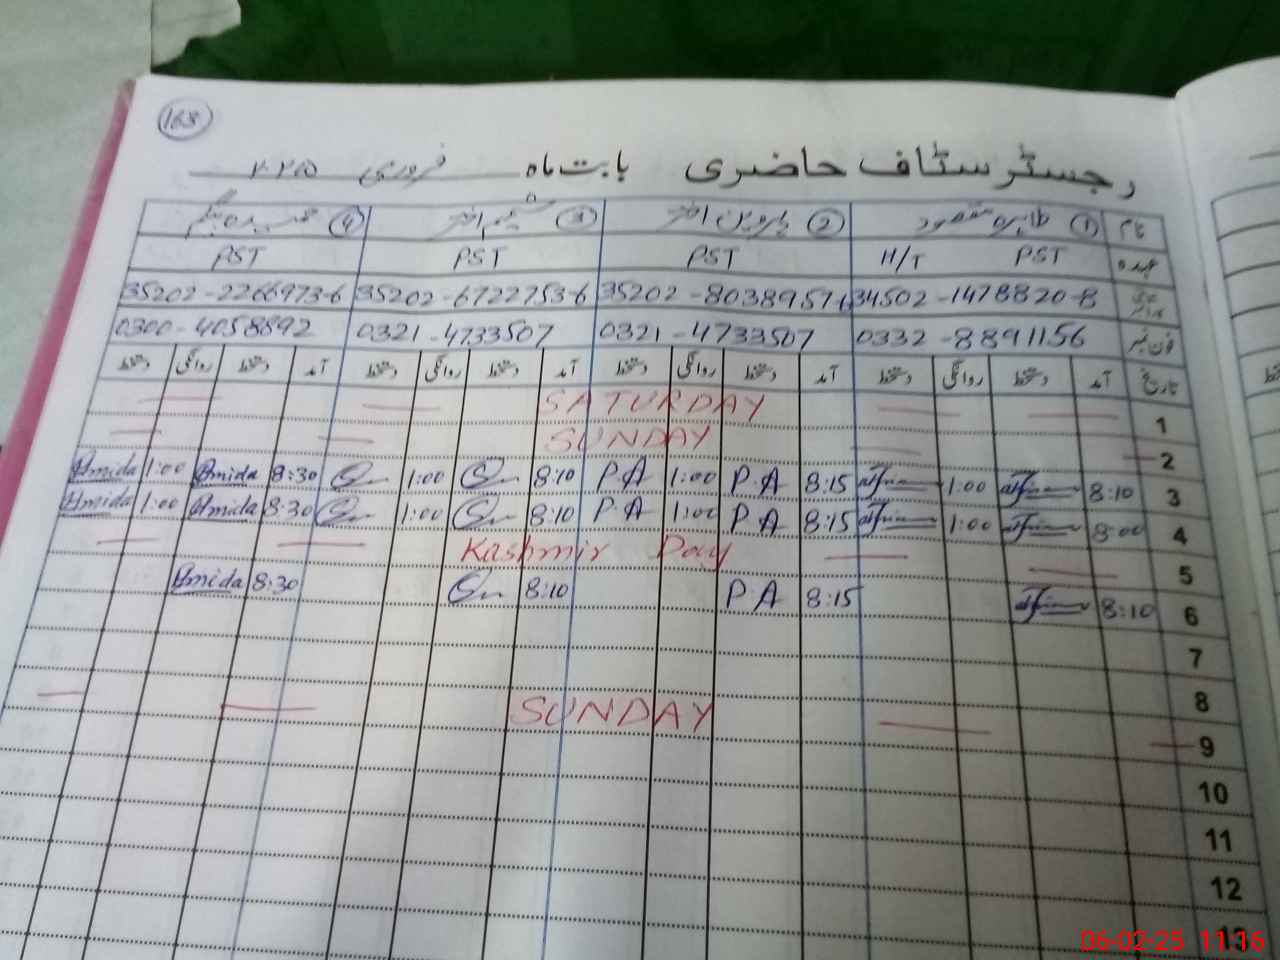 168
رجسٹر سٹاف حاضری بابت ماہ فروری ۲۰۲۵
نام ① طاہرہ مقصود ② پروین اختر ③ شمیم اختر ④ حمیدہ بیگم
عہدہ PST H/T PST PST PST
34502-1478820-8 35202-8038957-6 35202-6722753-6 35202-2266973-6
فون نمبر 0332-8891156 0321-4733507 0321-4733507 0300-4058892
تاریخ آمد دستخط روانگی دستخط آمد دستخط روانگی دستخط آمد دستخط روانگی دستخط آمد دستخط روانگی دستخط
1 SATURDAY
2 SUNDAY
3 8:10 1:00 8:15 P.A 1:00 P.A 8:10 1:00 8:30 Hmida 1:00 Hmida
4 8:00 1:00 8:15 P.A 1:00 P.A 8:10 1:00 8:30 Hmida 1:00 Hmida
5 Kashmir Day
6 8:10 8:15 P.A 8:10 8:30 Hmida
7
8
9 SUNDAY
10
11
12
13
06-02-25 11:16